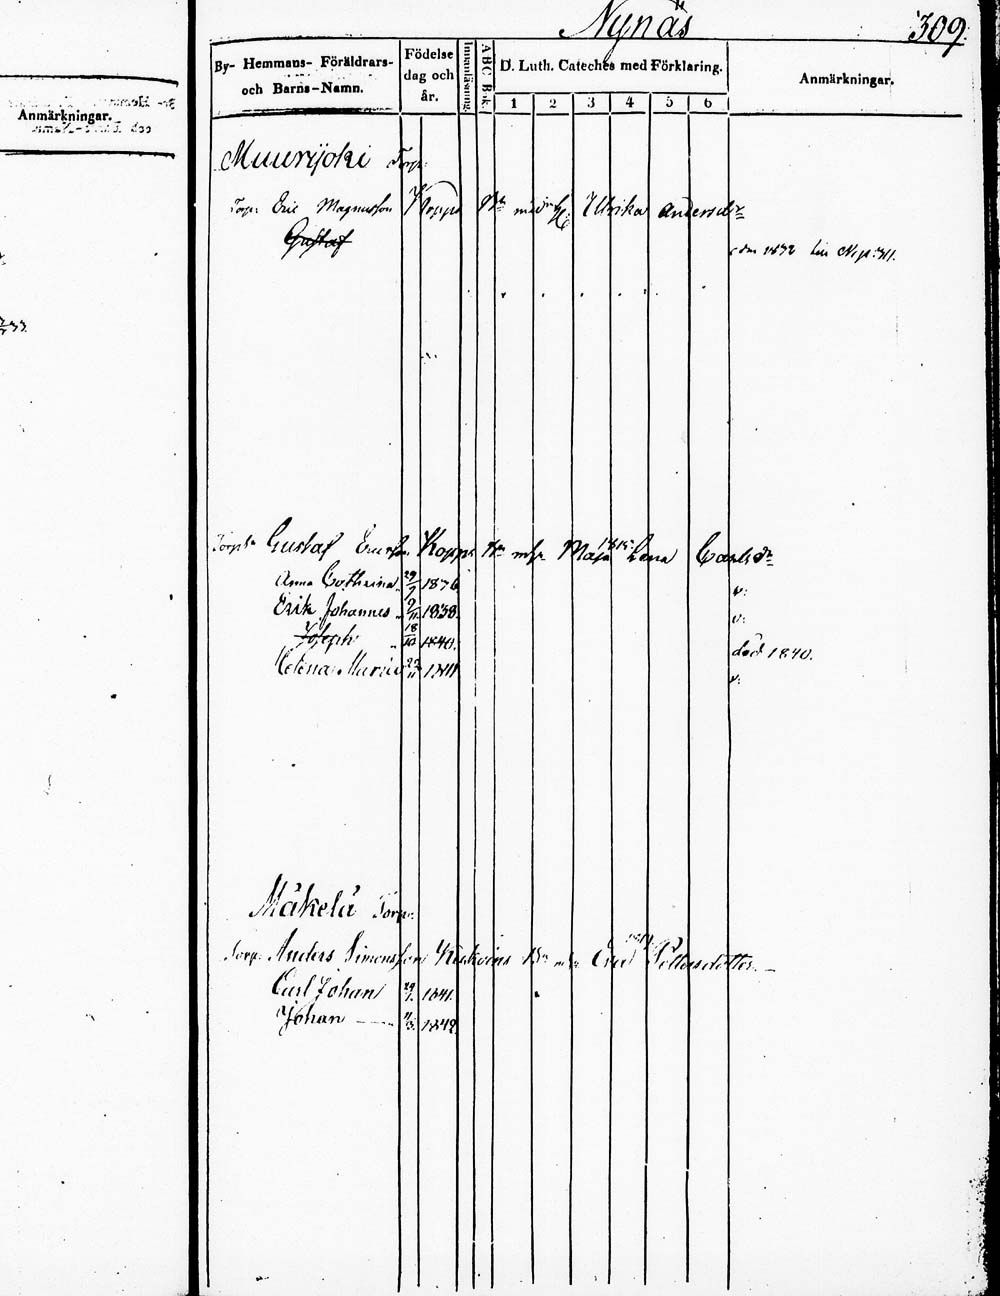 Nynäs
309.
By- Hemmans- Föräldrars- och Barns-Namn.
Födelse dag och år.
Innanläsning.
ABC Bok.
D. Luth. Cateches med Förklaring.
1 2 3 4 5 6
Anmärkningar.
Anmärkningar.
Muurijoki Torp:
Torp: Eric Magnusson Koppo Bn med Ulrika Andersdr
Gustaf
1832 N. p. 311.
Gustaf Ericsson Koppo Bn Maja Lena Carlsdr
1815
Anna Cathrina 29/7 1836 v:
Erik Johannes 9/11 1838. v:
Joseph 18/10 1840. död 1840.
Helena Maria 22/11 1841 v:
Mäkelä Torp:
Torp: Anders Simonsson Bn Eva Pettersdotter.
Carl Johan 29/1. 1841.
Johan 11/3. 1842.